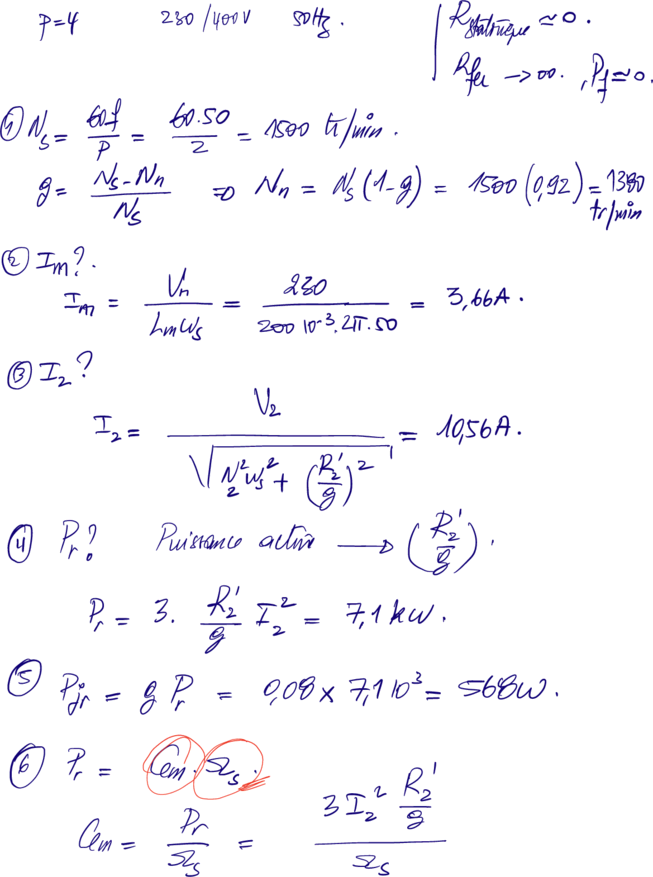 P=4 230/400V 50Hz. R statorique ≃ 0.
Rfer → ∞. , Pf ≃ 0.
① Ns = 60f/P = 60.50/2 = 1500 tr/min.
g = (Ns-Nn)/Ns ⇒ Nn = Ns(1-g) = 1500(0,92) = 1380 tr/min
② Im?.
Im = Vn/(Lmωs) = 230/(200 10^-3.2π.50) = 3,66A.
③ I2?
I2 = V2/√(N2²ωs² + (R2'/g)²) = 10,56A.
④ Pr? Puissance active → (R2'/g).
Pr = 3. R2'/g I2² = 7,1 kW.
⑤ Pjr = g Pr = 0,08 x 7,1 10^3 = 568W.
⑥ Pr = Cem . Ωs.
Cem = Pr/Ωs = (3 I2² R2'/g)/Ωs